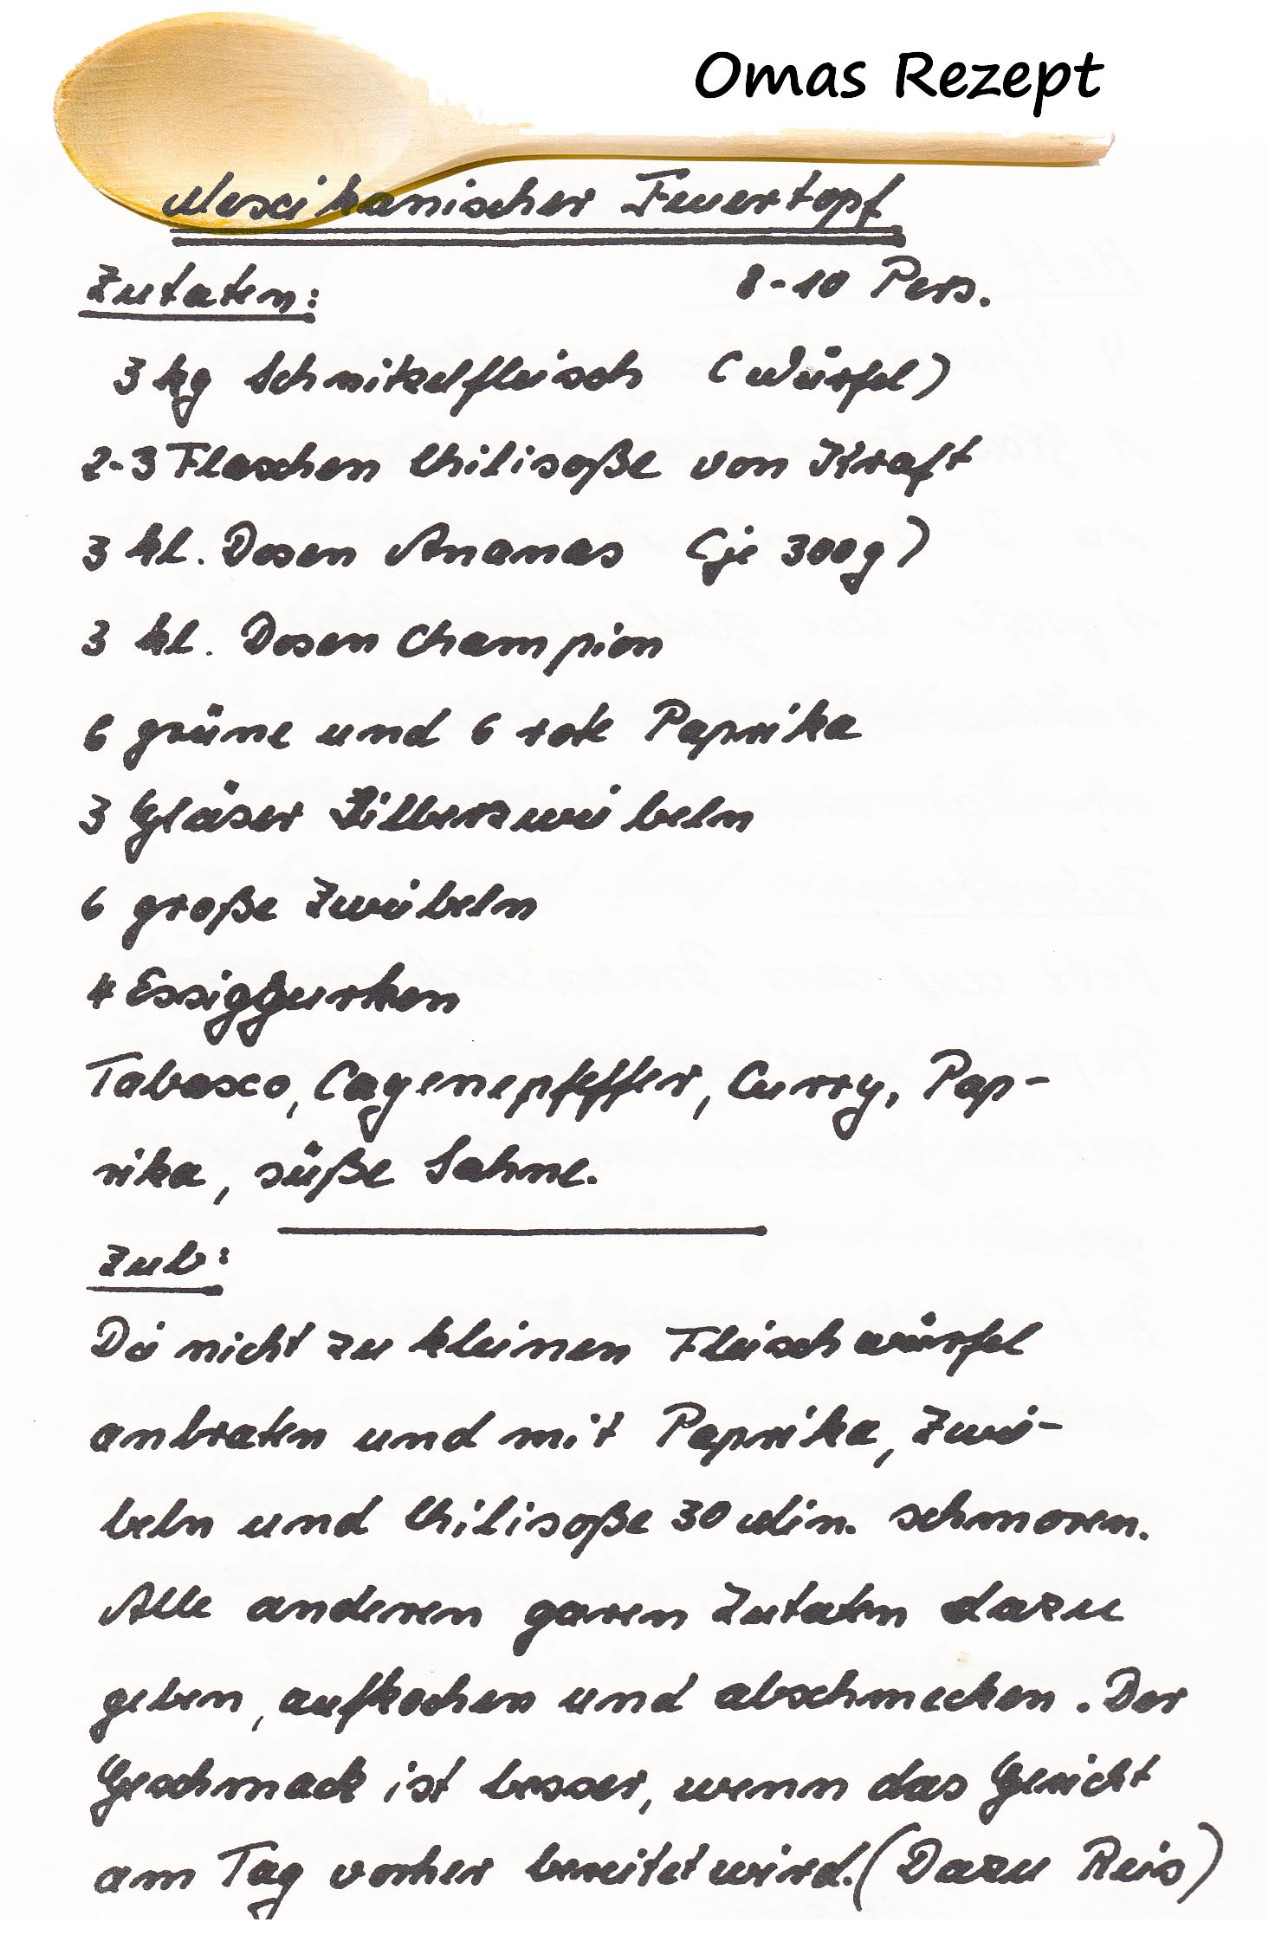 Omas Rezept
Mexikanischer Feuertopf
Zutaten: 8-10 Pers.
3 kg Schnitzelfleisch (Würfel)
2-3 Flaschen Chilisoße von Kraft
3 kl. Dosen Ananas (je 300g)
3 kl. Dosen Champion
6 grüne und 6 rote Paprika
3 Gläser Silberzwiebeln
6 große Zwiebeln
4 Essiggurken
Tabasco, Cayennepfeffer, Curry, Pap-
rika, süße Sahne.
Zub:
Die nicht zu kleinen Fleischwürfel
anbraten und mit Paprika, Zwie-
beln und Chilisoße 30 Min. schmoren.
Alle anderen garen Zutaten dazu
geben, aufkochen und abschmecken. Der
Geschmack ist besser, wenn das Gericht
am Tag vorher bereitet wird. (Dazu Reis)